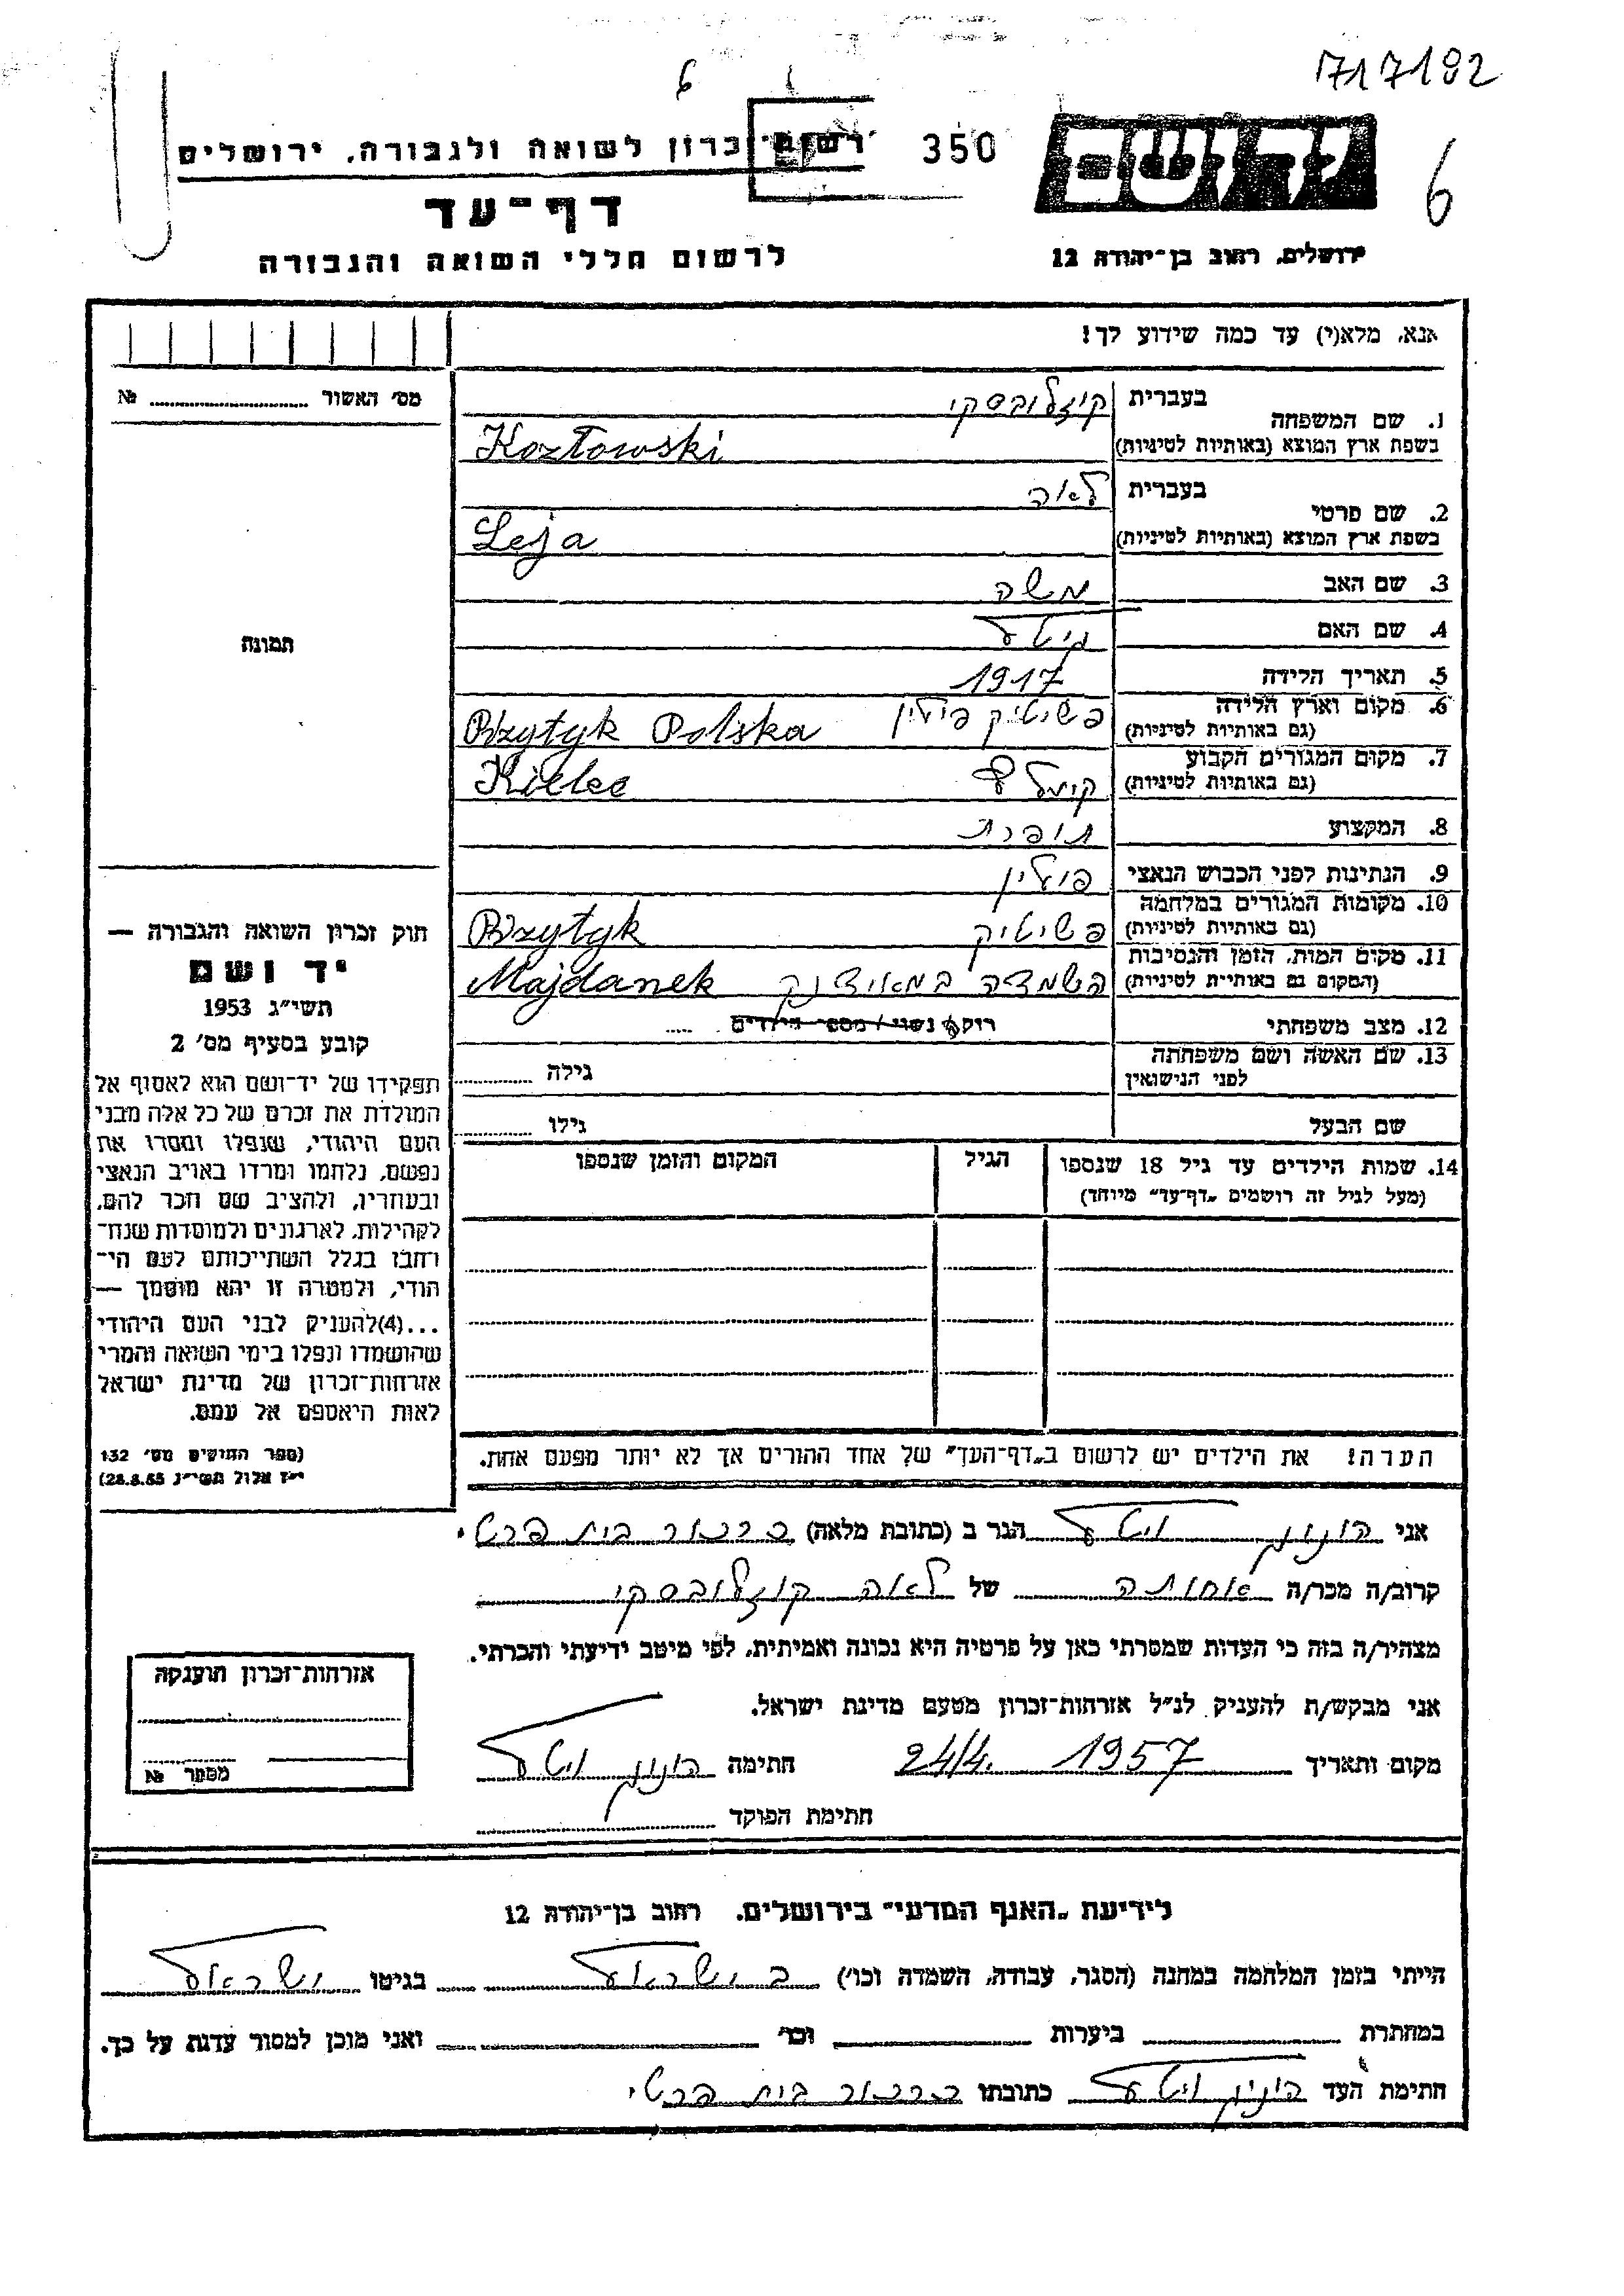 717192
6
350
יד ושם
6
רשות זכרון לשואה ולגבורה, ירושלים
דף־עד
לרשום חללי השואה והגבורה
ירושלים, רחוב בן־יהודה 12
אנא, מלא(י) עד כמה שידוע לך!
מס׳ האשור № 
1. שם המשפחה בעברית קוזלובסקי
בשפת ארץ המוצא (באותיות לטיניות) Kozłowski
2. שם פרטי בעברית לאה
בשפת ארץ המוצא (באותיות לטיניות) Leja
3. שם האב משה
4. שם האם
תמונה
5. תאריך הלידה 1917
6. מקום וארץ הלידה פשיטיק פולין Przytyk Polska
(גם באותיות לטיניות)
7. מקום המגורים הקבוע Kielce
(גם באותיות לטיניות)
8. המקצוע תופרת
9. הנתינות לפני הכבוש הנאצי פולין
10. מקומות המגורים במלחמה פשיטיק Przytyk
(גם באותיות לטיניות)
11. מקום המות, הזמן והנסיבות השמדה במאידנק Majdanek
(המקום גם באותיות לטיניות)
12. מצב משפחתי רוק/ה נשוי/ מספר הילדים
13. שם האשה ושם משפחתה גילה
לפני הנישואין
שם הבעל גילו
14. שמות הילדים עד גיל 18 שנספו הגיל המקום והזמן שנספו
(מעל לגיל זה רושמים „דף־עד״ מיוחד)
חוק זכרון השואה והגבורה —
יד ושם
תשי״ג 1953
קובע בסעיף מס׳ 2
תפקידו של יד־ושם הוא לאסוף אל
המולדת את זכרם של כל אלה מבני
העם היהודי, שנפלו ומסרו את
נפשם, נלחמו ומרדו באויב הנאצי
ובעוזריו, ולהציב שם וזכר להם,
לקהילות, לארגונים ולמוסדות שנח־
רבו בגלל השתייכותם לעם הי־
הודי, ולמטרה זו יהא מוסמך —
...(4)להעניק לבני העם היהודי
שהושמדו ונפלו בימי השואה והמרי
אזרחות־זכרון של מדינת ישראל
לאות היאספם אל עמם.
(ספר החוקים מס׳ 132
י״ז אלול תשי״ג 28.8.53)
הערה! את הילדים יש לרשום ב„דף־העד״ של אחד ההורים אך לא יותר מפעם אחת.
אני הגר ב (כתובת מלאה)
קרוב/ה מכר/ה אחותה של לאה קוזלובסקי
מצהיר/ה בזה כי העדות שמסרתי כאן על פרטיה היא נכונה ואמיתית, לפי מיטב ידיעתי והכרתי.
אני מבקש/ת להעניק לנ״ל אזרחות־זכרון מטעם מדינת ישראל.
מקום ותאריך 24/4. 1957 חתימה
חתימת הפוקד
אזרחות־זכרון הוענקה
מספר №
לידיעת „האגף המדעי״ בירושלים, רחוב בן־יהודה 12
הייתי בזמן המלחמה במחנה (הסגר, עבודה, השמדה וכו׳) בישראל בגיטו ישראל
במחתרת ביערות וכו׳ ואני מוכן למסור עדות על כך.
חתימת העד כתובתו